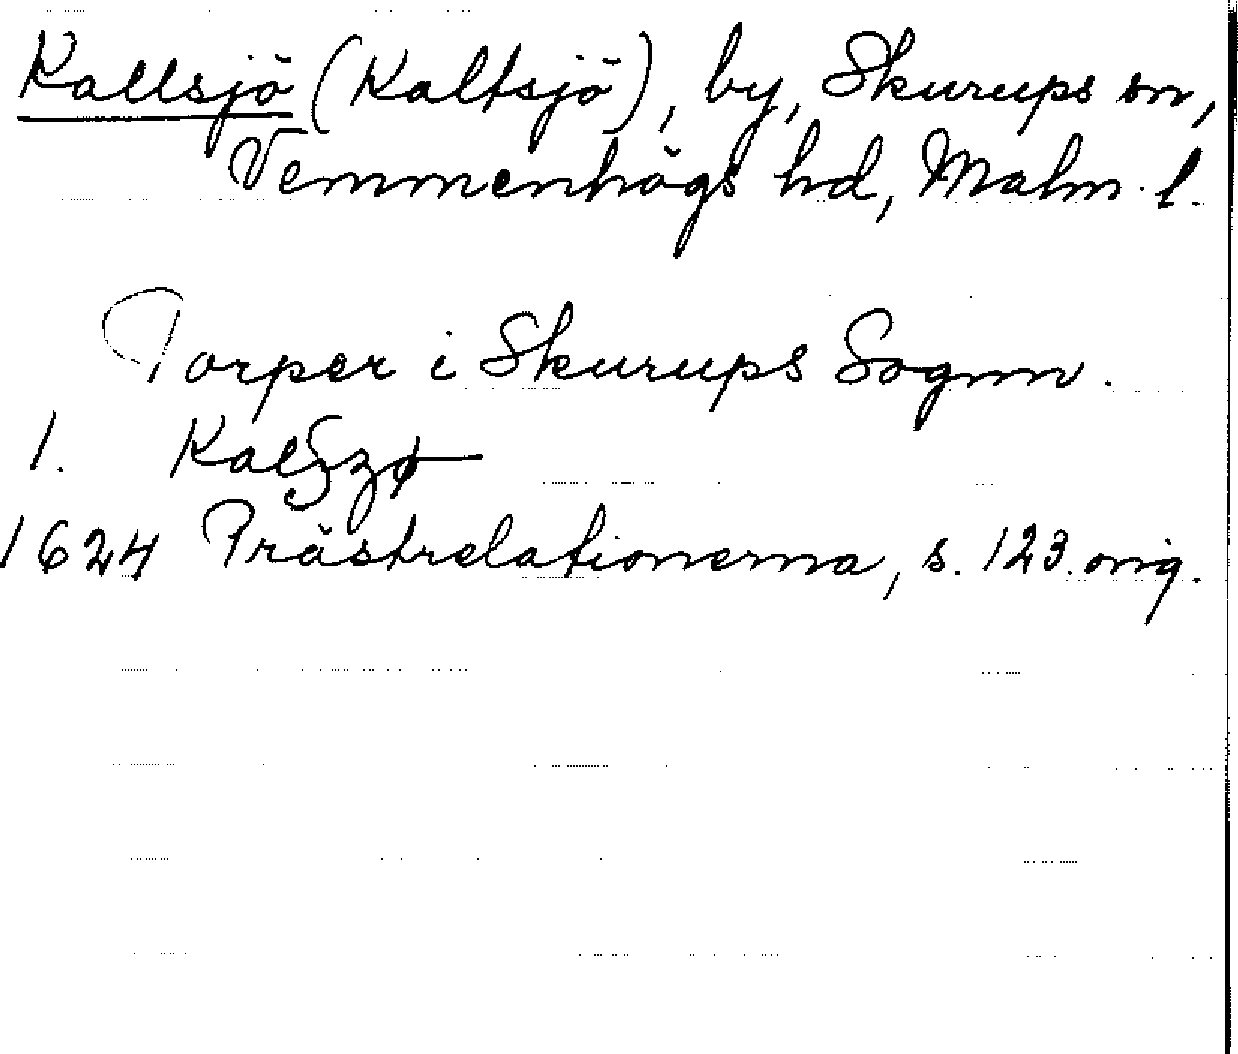 Kallsjö (Kaltsjö), by, Skurups sn,
Vemmenhögs hd, Malm. l.
Torper i Skurups Sognn.
1. Kalszø
1624 Prästrelationerna, s. 123. orig.